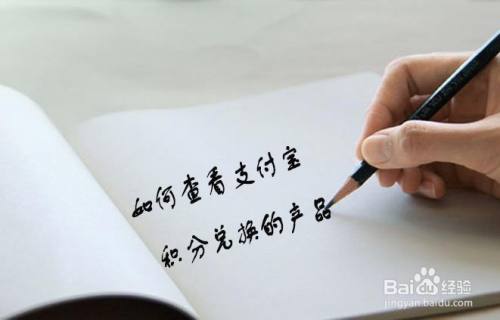 如何查看支付宝
积分兑换的产品
Baidu经验
jingyan.baidu.com